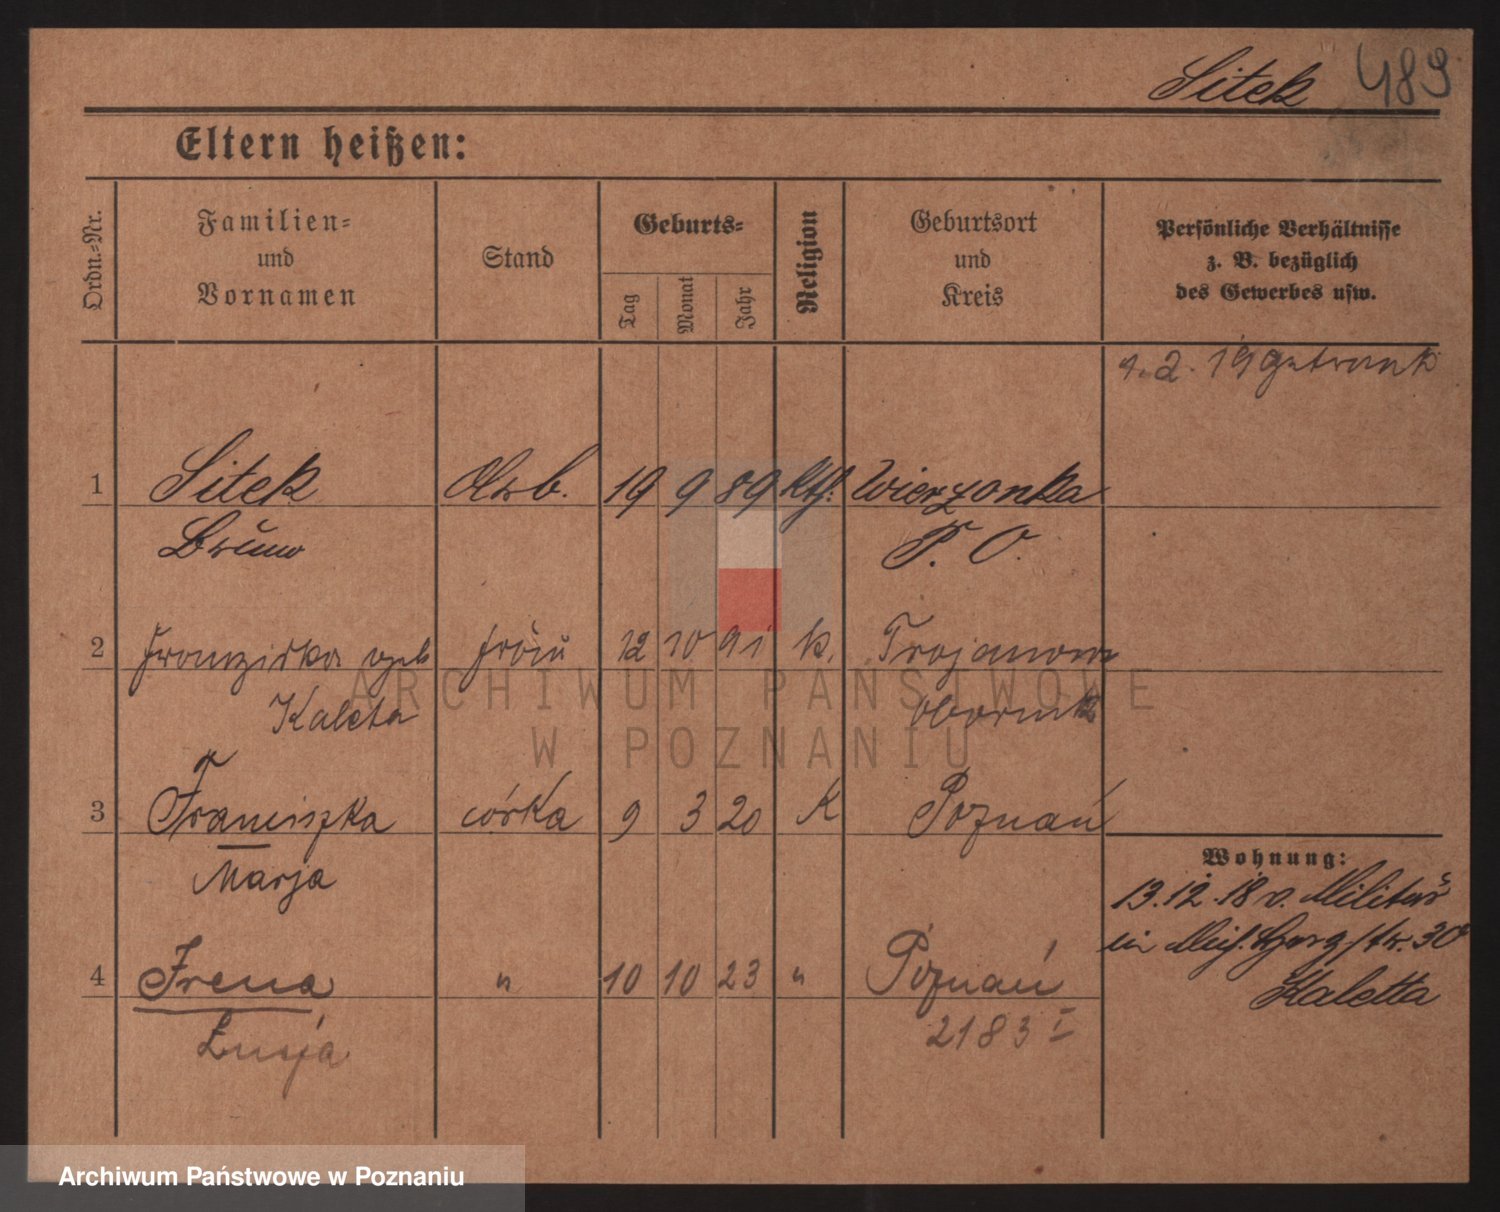 Sitek 489
Eltern heißen:
Ordn.-Nr.
Familien-
und
Vornamen
Stand
Geburts-
Tag
Monat
Jahr
Religion
Geburtsort
und
Kreis
Persönliche Verhältnisse
z. B. bezüglich
des Gewerbes usw.
1.2.19 getraut
1 Sitek Arb. 19 9 89 Kth. Wierzonka
Bruno P. O.
2 Franziska geb frau 12 10 91 k. Trojanowo
Kaleta Obornik
3 Franciszka córka 9 3 20 K Poznań
Marja
Wohnung:
13.12.18 v. Militär
in 30
Kaletta
4 Irena " 10 10 23 " Poznań
Łucja 2183 I
ARCHIWUM PAŃSTWOWE
W POZNANIU
Archiwum Państwowe w Poznaniu